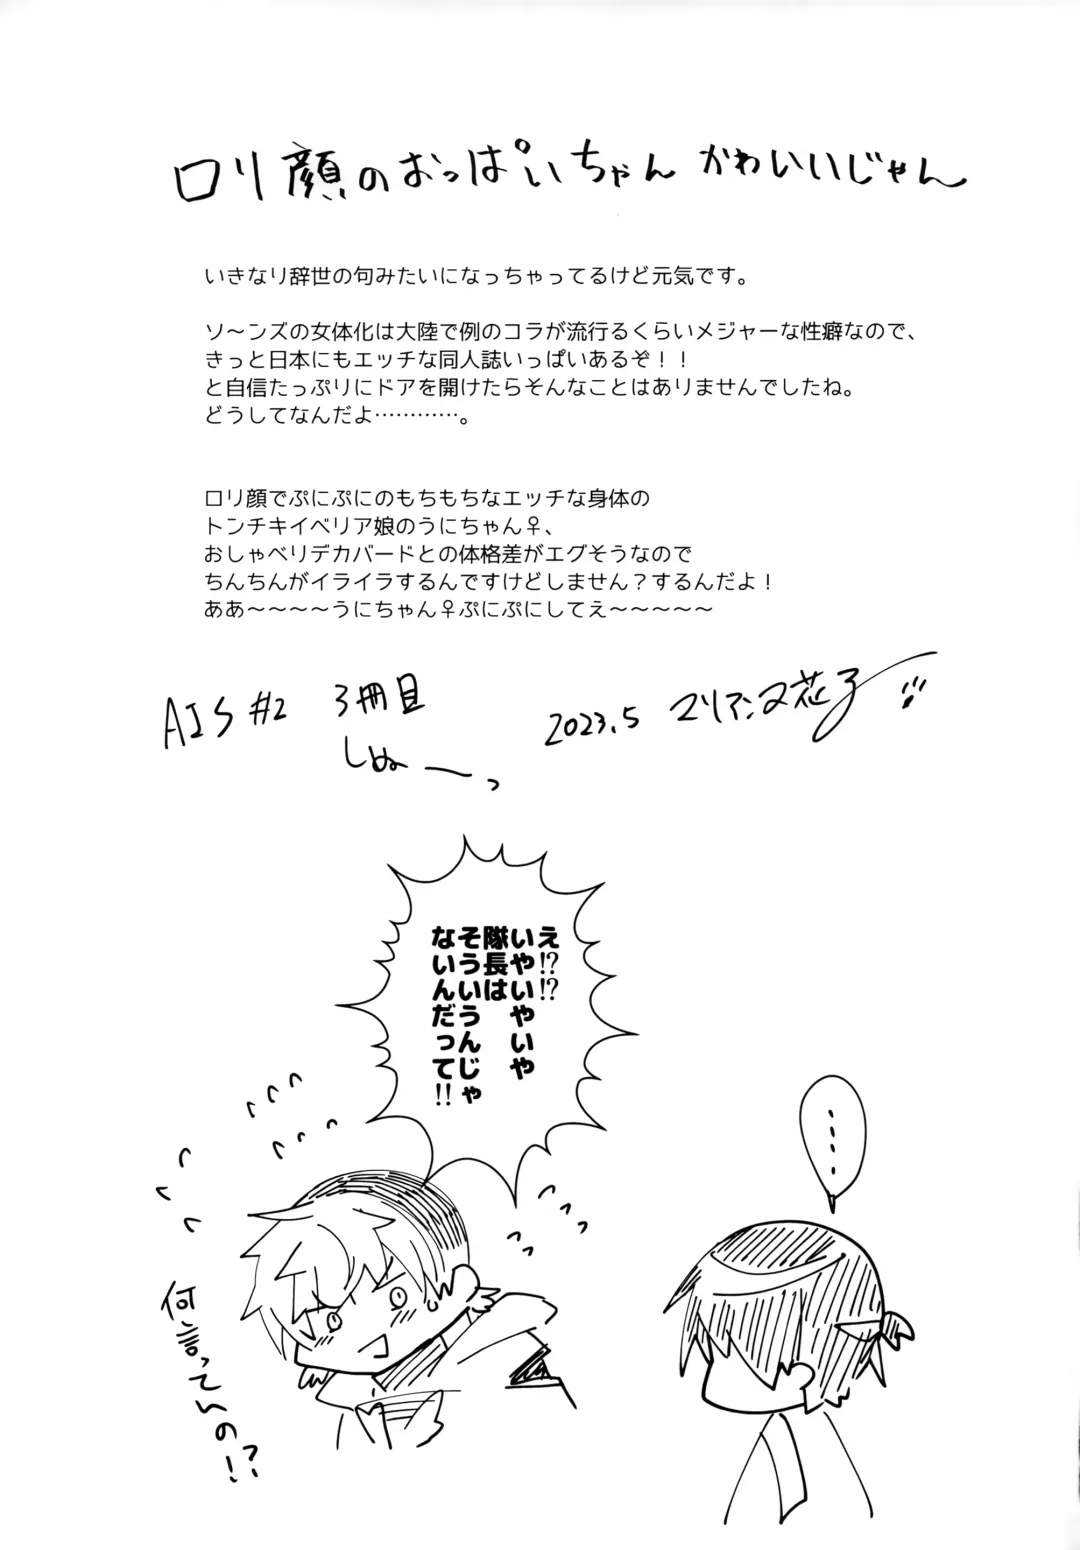 ロリ顔のおっぱいちゃん かわいいじゃん
いきなり辞世の句みたいになっちゃってるけど元気です。
ソ〜ンズの女体化は大陸で例のコラが流行るくらいメジャーな性癖なので、
きっと日本にもエッチな同人誌いっぱいあるぞ！！
と自信たっぷりにドアを開けたらそんなことはありませんでしたね。
どうしてなんだよ…………。
ロリ顔でぷにぷにのもちもちなエッチな身体の
トンチキイベリア娘のうにちゃん♀、
おしゃべりデカバードとの体格差がエグそうなので
ちんちんがイライラするんですけどしません？するんだよ！
ああ〜〜〜〜うにちゃん♀ぷにぷにしてえ〜〜〜〜〜
AJS #2 3冊目
しぬーっ
2023.5 マリアンヌ花子
え!?!?
いやいやいや
隊長は
そういうんじゃ
ないんだって!!
....
何言ってんの!?